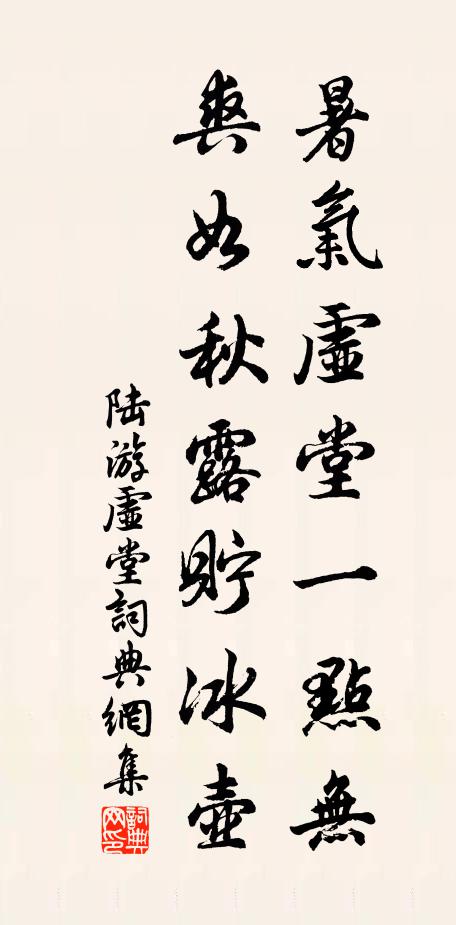 暑氣虛堂一點無
爽如秋露貯冰壺
陸游虛堂詞典網集
詞典网印